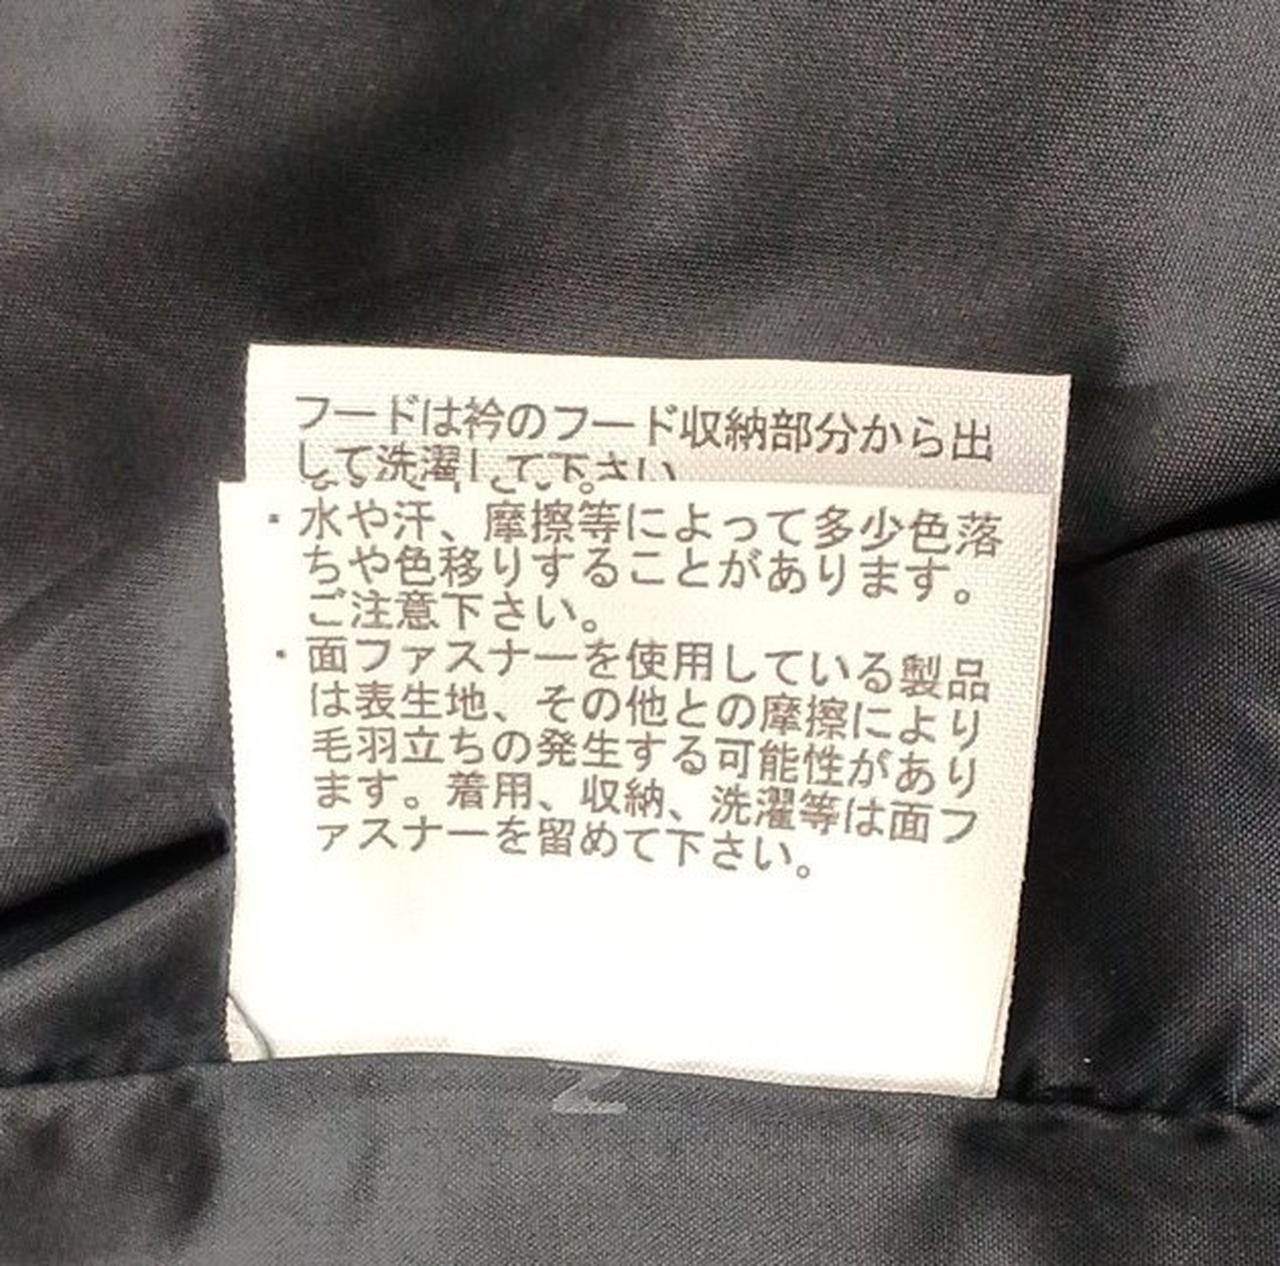 フードは衿のフード収納部分から出
して洗濯して下さい
・水や汗、摩擦等によって多少色落
ちや色移りすることがあります。
ご注意下さい。
・面ファスナーを使用している製品
は表生地、その他との摩擦により
毛羽立ちの発生する可能性があり
ます。着用、収納、洗濯等は面フ
ァスナーを留めて下さい。